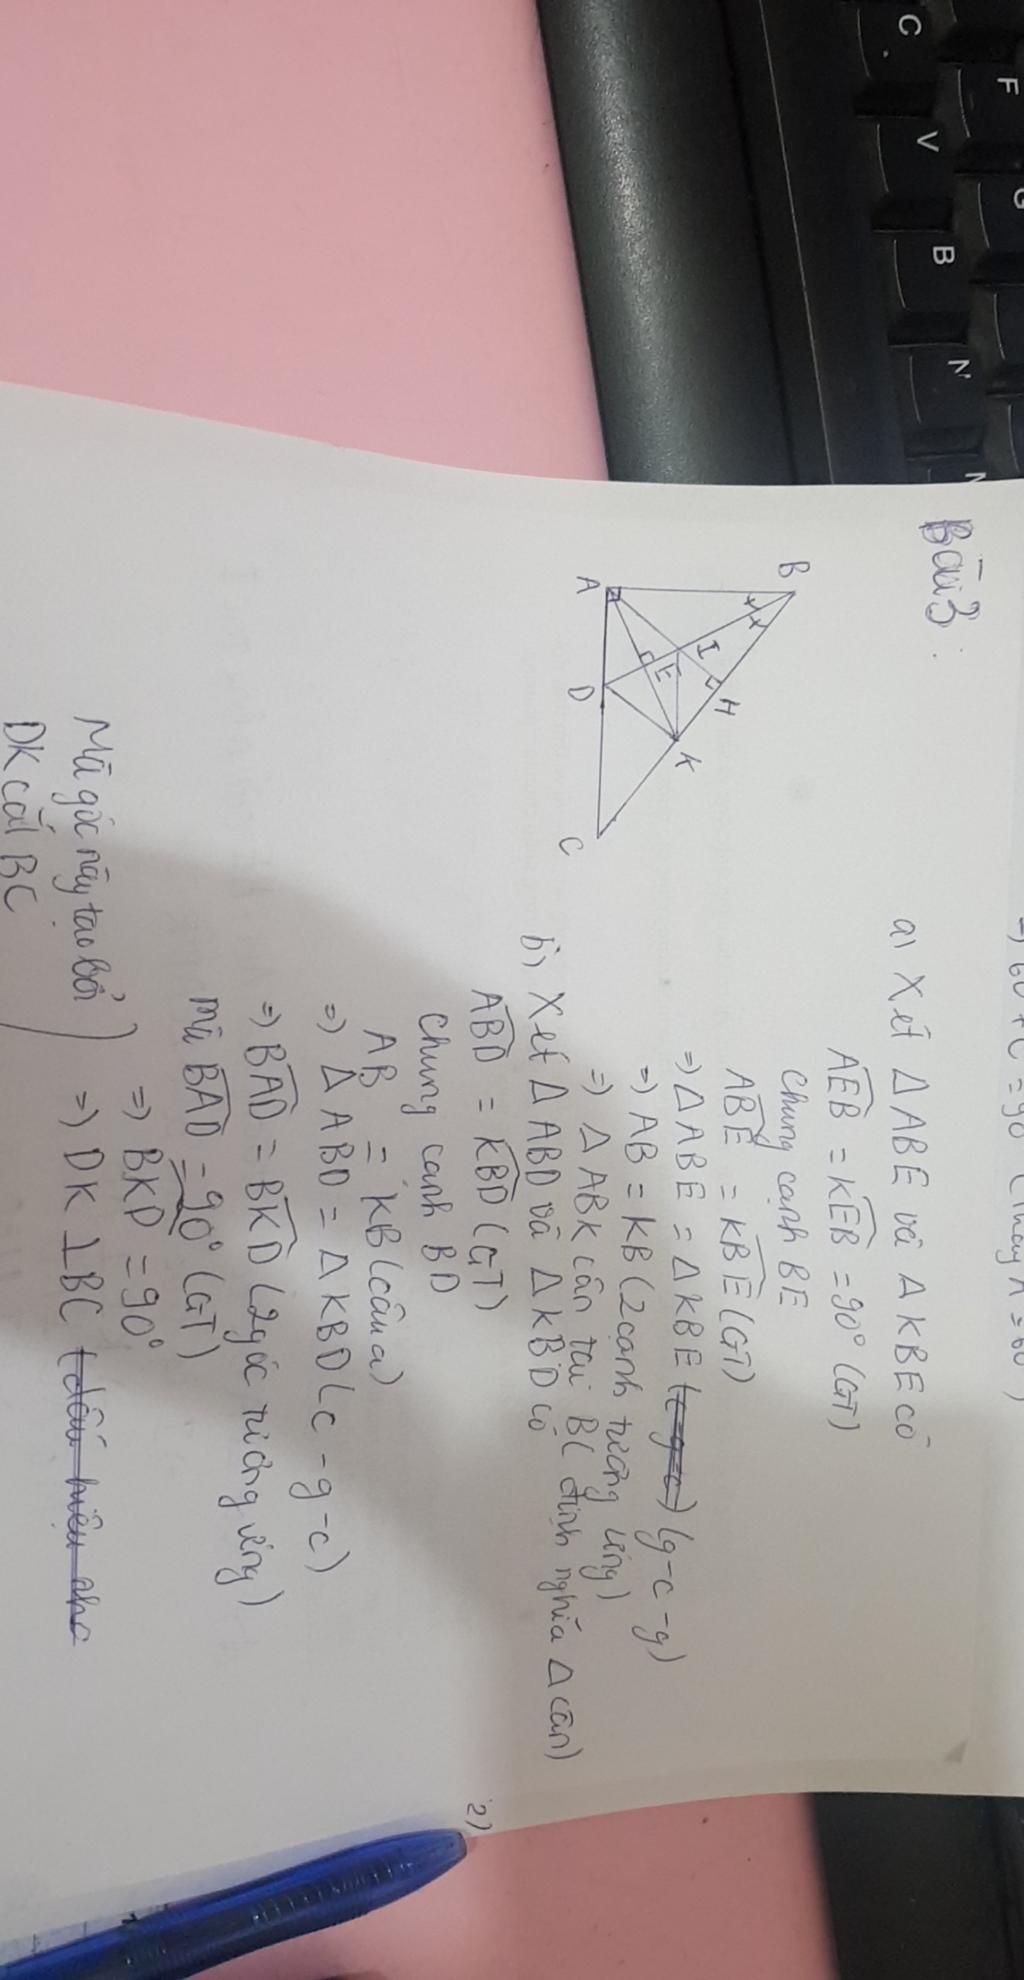 =) 60 + C = 90
Bài 3:
B
H
I
K
E
A
D
C
a) Xét ΔABE và ΔKBE có
AEB = KEB = 90° (GT)
Chung cạnh BE
ABE = KBE (GT)
=) ΔABE = ΔKBE (g-c-g)
=) AB = KB (2 cạnh tương ứng)
=) ΔABK cân tại B( định nghĩa Δ cân)
b) Xét ΔABD và ΔKBD có
ABD = KBD (GT)
Chung cạnh BD
AB = KB (câu a)
=) ΔABD = ΔKBD (c-g-c)
=) BAD = BKD (2 góc tương ứng)
mà BAD = 90° (GT)
=) BKD = 90°
Mà góc này tạo bởi
DK cắt BC
=) DK ⊥ BC
2)
C
F
G
V
B
N